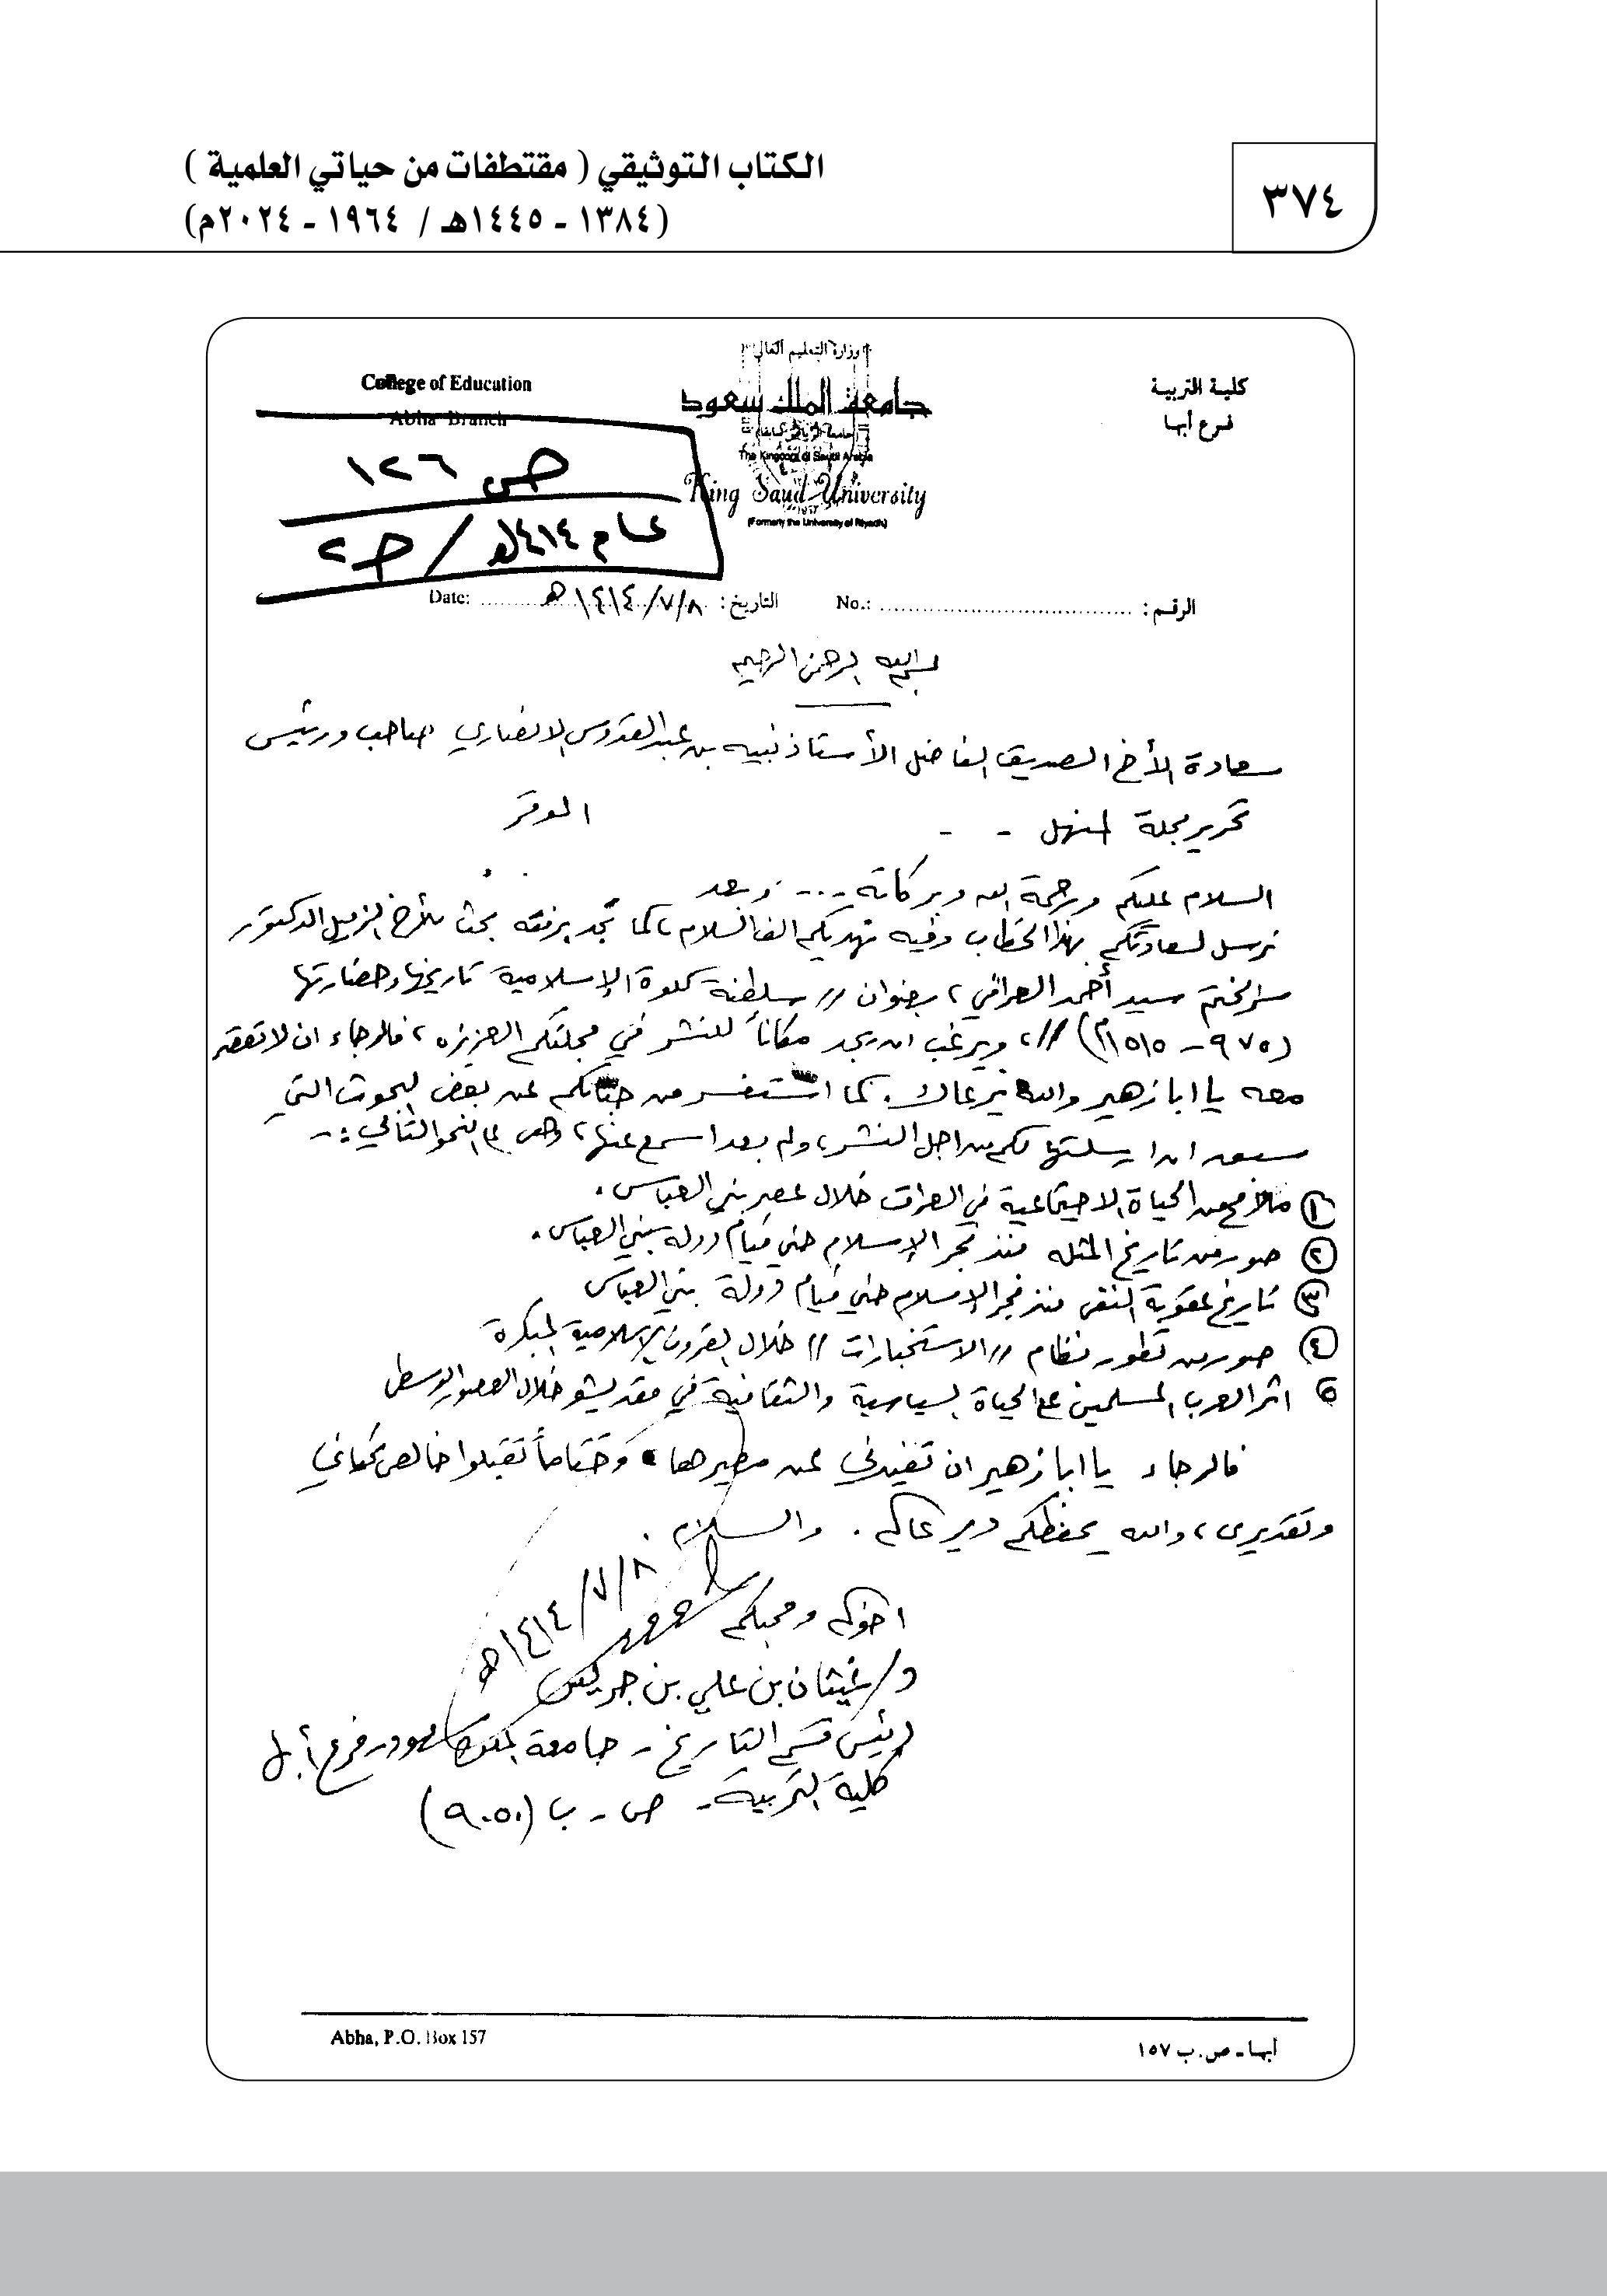 الكتاب التوثيقي ( مقتطفات من حياتي العلمية )
(١٣٨٤ - ١٤٤٥هـ / ١٩٦٤ - ٢٠٢٤م)
٣٧٤
كلية التربية
فرع أبها
وزارة التعليم العالي
جامعة الملك سعود
The Kingdom of Saudi Arabia
King Saud University
(Formerly the University of Riyadh)
College of Education
Abha Branch
ص ١٢٦
عام ١٤١٤هـ / حـ ٢
الرقم : No.:
التاريخ : ١٤١٤/٧/٨ هـ Date:
بسم الله الرحمن الرحيم
سعادة الأخ الصديق الفاضل الأستاذ نبيه بن عبد القدوس الانصاري صاحب ورئيس
تحرير مجلة المنهل - - الموقر
السلام عليكم ورحمة الله وبركاته ... وبعد
نرسل لسعادتكم بهذا الخطاب وفيه نهديكم الف السلام، كما تجد برفقه بحث الزميل الدكتور
سر الختم سيد أحمد العراقي، بعنوان // سلطنة كلوة الإسلامية تاريخها وحضارتها
(٩٧٥ - ١٥١٥م) //، ويرغب ان يجد مكاناً للنشر في مجلتكم العزيزه، فالرجاء ان لا تقصر
معه يا ابا زهير والله يرعاك. كما استفسر من جنابكم عن بعض البحوث التي
سبق ان ارسلتها لكم من اجل النشر، ولم بعد اسمع عنها، وهي على النحو التالي :-
١ ملامح من الحياة الاجتماعية في العراق خلال عصر بني العباس.
٢ صور من تاريخ المثله منذ فجر الإسلام حتى قيام دولة بني العباس.
٣ تاريخ عقوبة النفي منذ فجر الاسلام حتى قيام دولة بني العباس
٤ صور من تطور نظام // الاستخبارات // خلال القرون الإسلامية المبكرة
٥ اثر العرب المسلمين على الحياة السياسية والثقافية في مقديشو خلال العصور الوسطى
فالرجاء يا ابا زهير ان تفيدني عن مصيرها، وختاماً تقبلوا خالص تحياتي
وتقديري، والله يحفظكم ويرعاكم. والسلام.
١٤١٤/٧/٨هـ
اخوكم ومحبكم
د/ غيثان بن علي بن جريس
رئيس قسم التاريخ - جامعة الملك سعود - فرع أبها
كلية التربية - ص - ب (٩٠٥٠)
أبها - ص. ب ١٥٧
Abha, P.O. Box 157